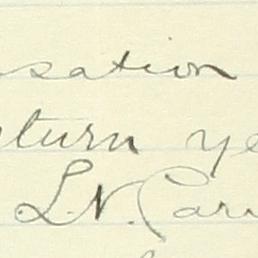 sation
turn ye
L.N. Carr